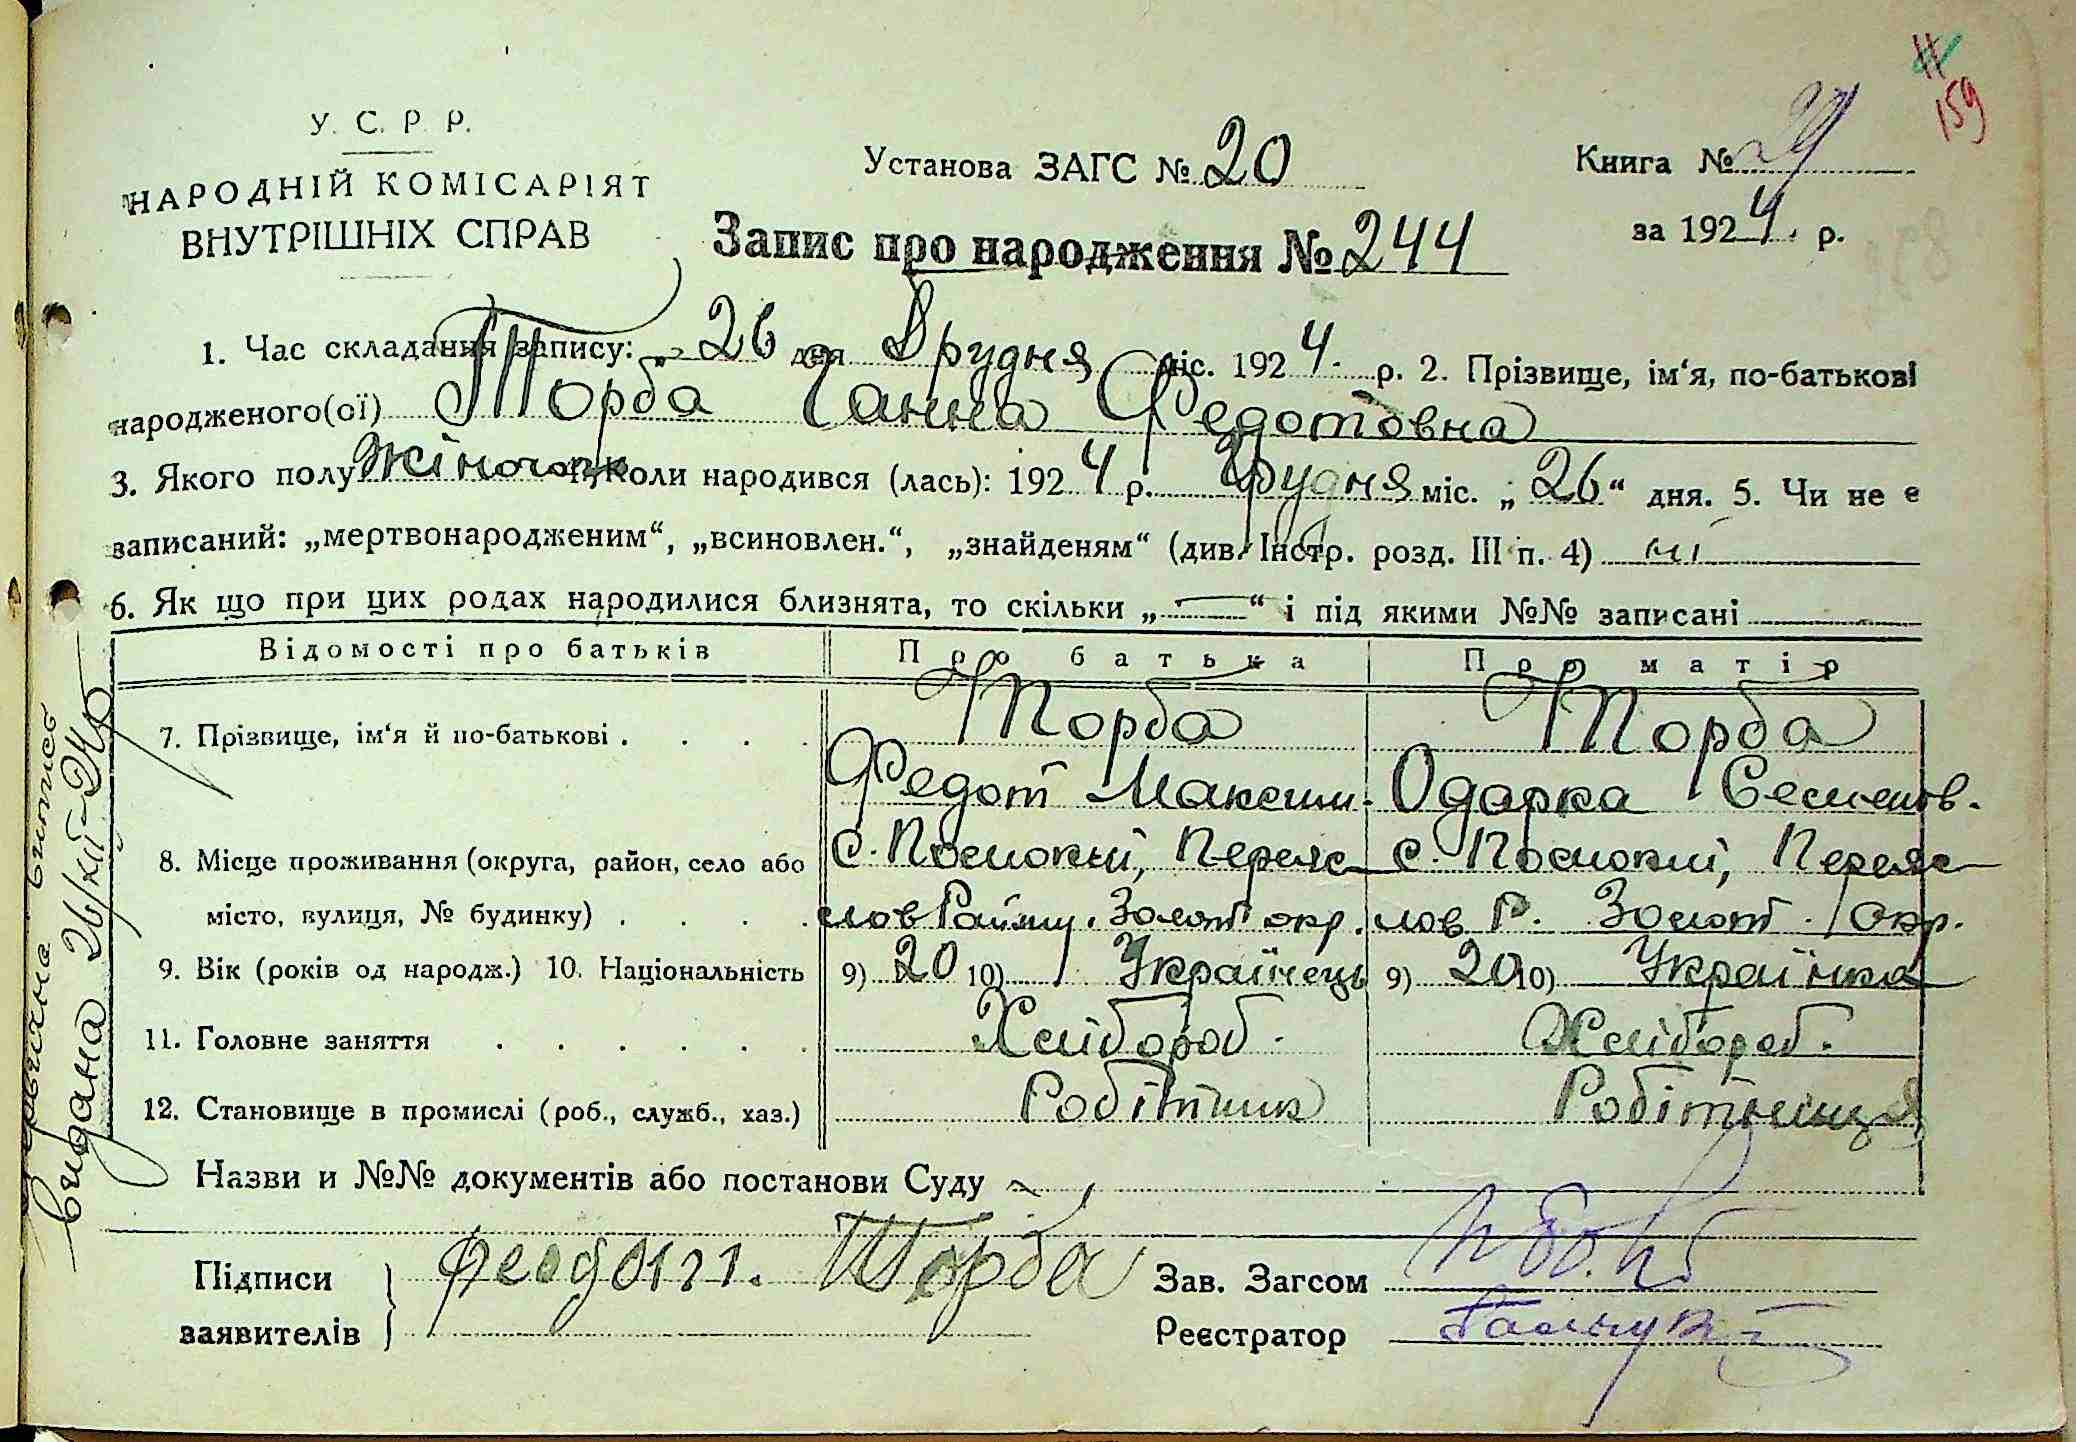 159
У. С. Р. Р.
НАРОДНІЙ КОМІСАРІЯТ
ВНУТРІШНІХ СПРАВ
Установа ЗАГС № 20
Книга № 29
за 1924. р.
Запис про народження № 244
1. Час складання запису: „ 26 дня Грудня міс. 1924. р. 2. Прізвище, ім‘я, по-батькові
народженого(ої) Торба Ганна Федотовна
3. Якого полу Жіночого Коли народився (лась): 1924 р. Грудня міс. „ 26 “ дня. 5. Чи не є
записаний: „мертвонародженим“, „всиновлен.“, „знайденям“ (див. Інстр. розд. III п. 4) ні
6. Як що при цих родах народилися близнята, то скільки „ — “ і під якими №№ записані
Відомості про батьків Про батька Про матір
7. Прізвище, ім‘я й по-батькові . . . . Торба Торба
Федот Максим. Одарка Семенов.
8. Місце проживання (округа, район, село або с. Помокні, Переяс с. Помокні, Переяс
місто, вулиця, № будинку) . . . . лов Району. Золот окр. лов Р. Золот. окр.
9. Вік (років од народж.) 10. Національність 9) 20 10) Українець 9) 20 10) Українка
11. Головне заняття . . . . . . Хлібороб. Хлібороб.
12. Становище в промислі (роб., служб., хаз.) Робітник Робітниця
Назви и №№ документів або постанови Суду
Підписи
заявителів
Феодот. Торба
Зав. Загсом
Реєстратор
випис
видана 26/XII-24р